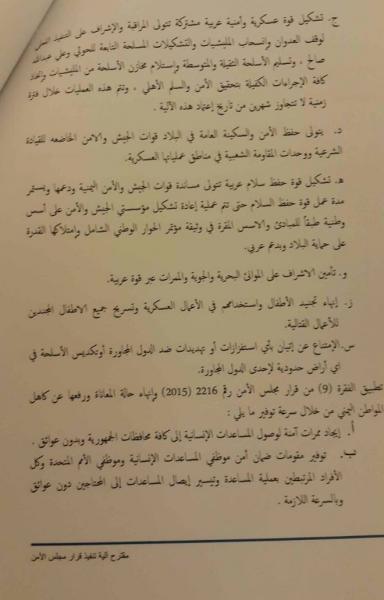 ج. تشكيل قوة عسكرية وأمنية عربية مشتركة تتولى المراقبة والإشراف على التنفيذ الفعلي
لوقف العدوان وانسحاب المليشيات والتشكيلات المسلحة التابعة للحوثي وعلي عبدالله
صالح ، وتسليم الأسلحة الثقيلة والمتوسطة واستلام مخازن الأسلحة من المليشيات واتخاذ
كافة الإجراءات الكفيلة بتحقيق الأمن والسلم الأهلي ، وتتم هذه العمليات خلال فترة
زمنية لا تتجاوز شهرين من تاريخ إعتماد هذه الآلية .
د. يتولى حفظ الأمن والسكينة العامة في البلاد قوات الجيش والامن الخاضعه للقيادة
الشرعية ووحدات المقاومة الشعبية في مناطق عملياتها العسكرية.
هـ. تشكيل قوة حفظ سلام عربية تتولى مساندة قوات الجيش والأمن اليمنية ودعمها ويستمر
مدة عمل قوة حفظ السلام حتى تتم عملية إعادة تشكيل مؤسستي الجيش والأمن على أسس
وطنية طبقاً للمبادئ والاسس المقرة في وثيقة مؤتمر الحوار الوطني الشامل وإمتلاكها القدرة
على حماية البلاد وبدعم عربي.
و. تأمين الاشراف على الموانئ البحرية والجوية والممرات عبر قوة عربية.
ز. إنهاء تجنيد الأطفال واستخدامهم في الأعمال العسكرية وتسريح جميع الاطفال المجندين
للأعمال القتالية.
س. الإمتناع عن إتيان بأي استفزازات أو تهديدات ضد الدول المجاورة أوتكديس الأسلحة في
اي أراض حدودية لإحدى الدول المجاورة.
تطبيق الفقرة (9) من قرار مجلس الأمن رقم 2216 (2015) وإنهاء حالة المعاناة ورفعها عن كاهل
المواطن اليمني من خلال سرعة توفير ما يلي :
أ. إيجاد ممرات آمنة لوصول المساعدات الإنسانية إلى كافة محافظات الجمهورية وبدون عوائق .
ب. توفير مقومات ضمان أمن موظفي المساعدات الإنسانية وموظفي الأمم المتحدة وكل
الأفراد المرتبطين بعملية المساعدة وتيسير إيصال المساعدات إلى المحتاجين دون عوائق
وبالسرعة اللازمة .
مقترح آلية تنفيذ قرار مجلس الأمن